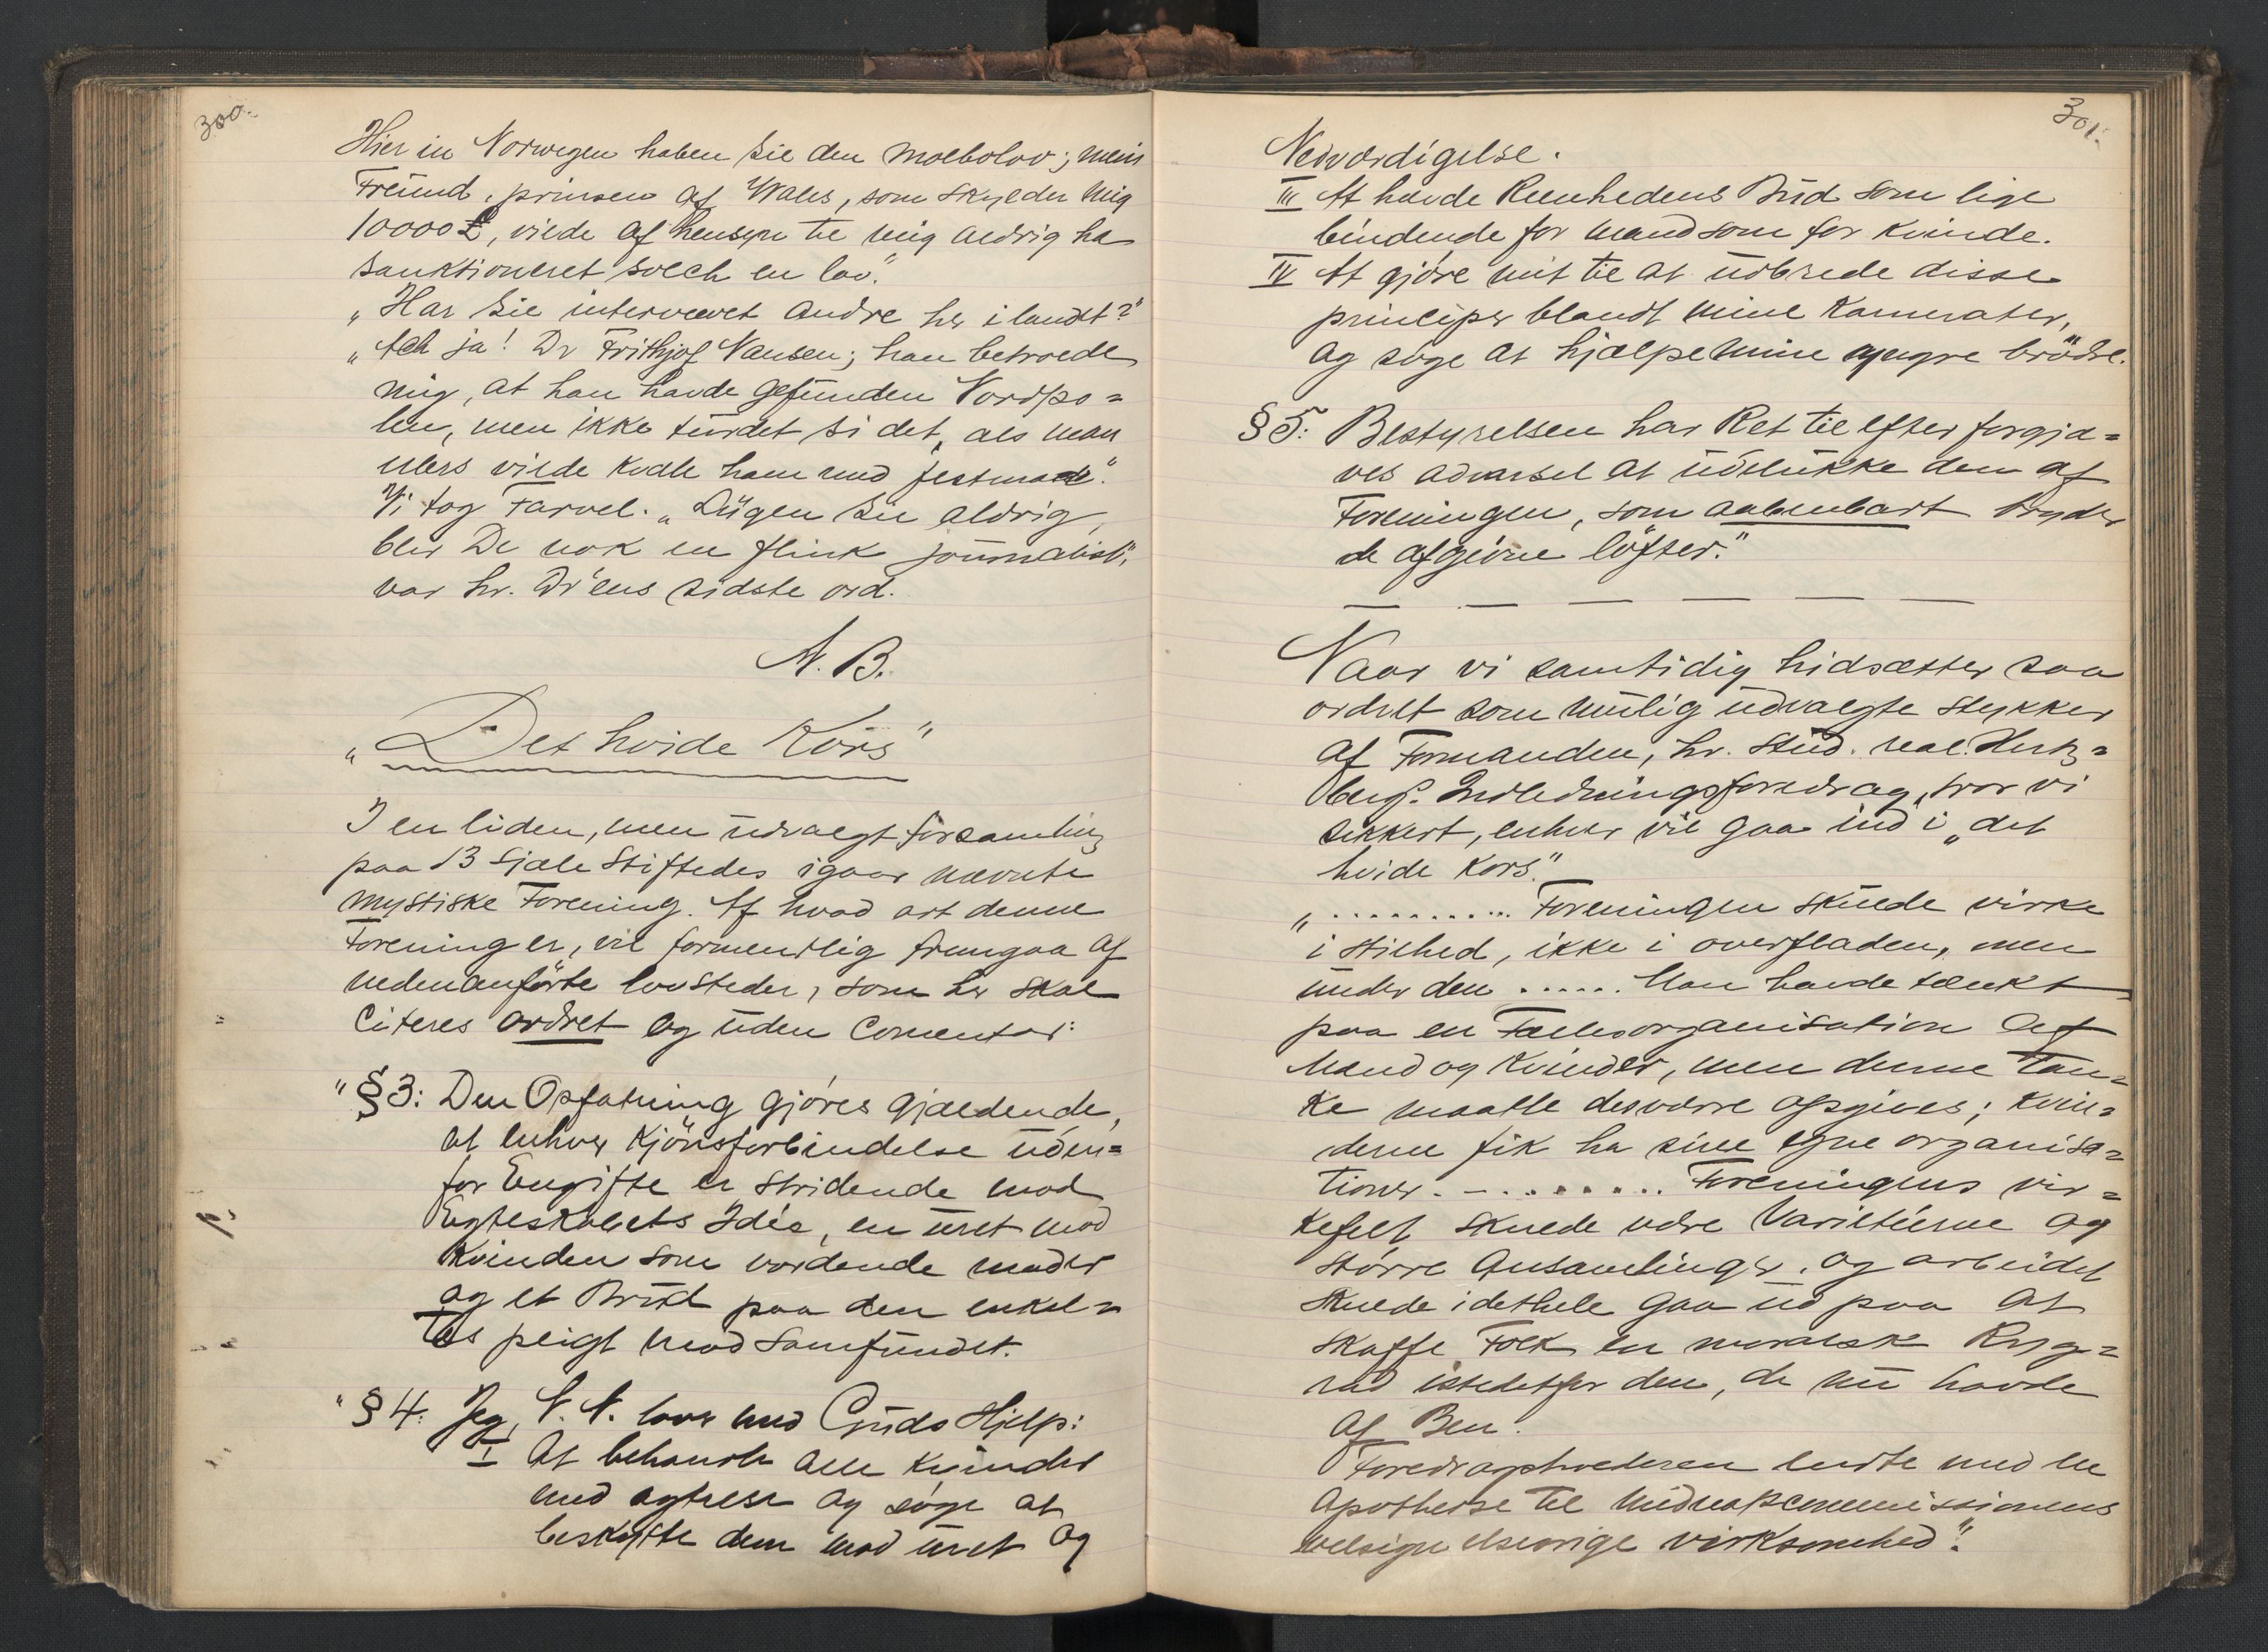 300.
Hier in Norwegen haben Sie den Moebolov; mein
Freund, prinsen af Wales, som skylder mig
10000£, vilde af hensyn til mig aldrig ha
sanktioneret solch en lov."
„Har Sie interviewet andre her i landet?"
„Ach ja! Dr Frithjof Nansen; han betroede
mig, at han havde gefunden Nordpo=
len, men ikke turdet si det, als man
ellers vilde kvæle ham med festmad."
Vi tog Farvel. „Lügen Sie aldrig,
blir De nok en flink journalist",
var hr. Dr'ens sidste ord.
N. B.
„Det hvide Kors"
I en liden, men udvalgt forsamling
paa 13 sjæle stiftedes igaar nævnte
mystiske Forening. Af hvad art denne
Forening er, vil formentlig fremgaa af
nedenanførte lovsteder, som her skal
citeres ordret og uden Comentar:
"§3: Den Opfatning gjøres gjældende,
at enhver Kjønsforbindelse uden=
for Engifte er stridende mod
Egteskabets Idée, en uret mod
Kvinden som vordende moder
og et Brud paa den enkel=
tes pligt mod Samfundet.
"§4: Jeg, N. N. lover med Guds Hjelp:
I At behandle alle kvinder
med agtelse og søge at
beskytte dem mod uret og
301.
Nedværdigelse.
III At havde Renhedens Bud som lige
bindende for mand som for kvinde.
IV At gjøre mit til at udbrede disse
principer blandt mine Kamerater,
og søge at hjælpe mine yngre brødre.
§5: Bestyrelsen har Ret til efter forgjæ=
ves advarsel at udelukke dem af
Foreningen, som aabenbart bryder
de afgivne løfter."
Naar vi samtidig hidsætter saa
ordret som mulig udvalgte stykker
af Formanden, hr. stud. real. Hertz=
bergs Indledningsforedrag, tror vi
sikkert, enhver vil gaa ind i „det
hvide Kors".
„.......... Foreningen skulde virke
i stilhed, ikke i overfladen, men
under den ...... Man havde tænkt
paa en Fællesorganisation af
Mænd og Kvinder, men denne Tan=
ke maatte desværre opgives; kvin=
derne fik ha sine egne organisa=
tioner. - ......... Foreningens vir=
kefelt skulde være Varietéerne og
større Ansamlinger, og arbeidet
skulde idethele gaa ud paa at
skaffe Folk en moralsk Ryg=
rad istedetfor den, de nu havde
af Ben.
Foredragsholderen endte med en
apotheose til Midnatscommissionens
velsignelsesrige virksomhed".